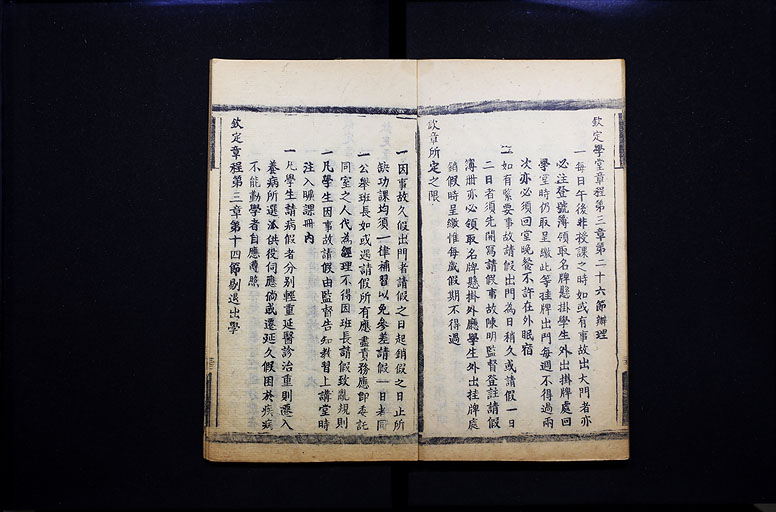 欽定學堂章程第三章第二十六節辦理
一每日午後非授課之時如或有事故出大門者亦
必注登號簿領取名牌懸掛學生外出掛牌處回
學堂時仍取呈繳此等挂牌出門每週不得過兩
次亦必須回堂晚餐不許在外眠宿
一如有緊要事故請假出門為日稍久或請假一日
二日者須先開寫請假事故陳明監督登註請假
簿冊亦必領取名牌懸掛外廳學生外出挂牌處
銷假時呈繳惟每歲假期不得過
欽章所定之限
一因事故久假出門者請假之日起銷假之日止所
缺功課均須一律補習以免參差請假一日者同
一公舉班長如或遇請假所有應盡責務應即委託
同室之人代為經理不得因班長請假致亂規則
一凡學生因事故請假由監督告知教習上講堂時
注入曠課冊內
一凡學生請病假者分別輕重延醫診治重則遷入
養病所選派供役伺應倘或遷延久假因於疾病
不能勤學者自應遵照
欽定章程第三章第十四節剔退出學